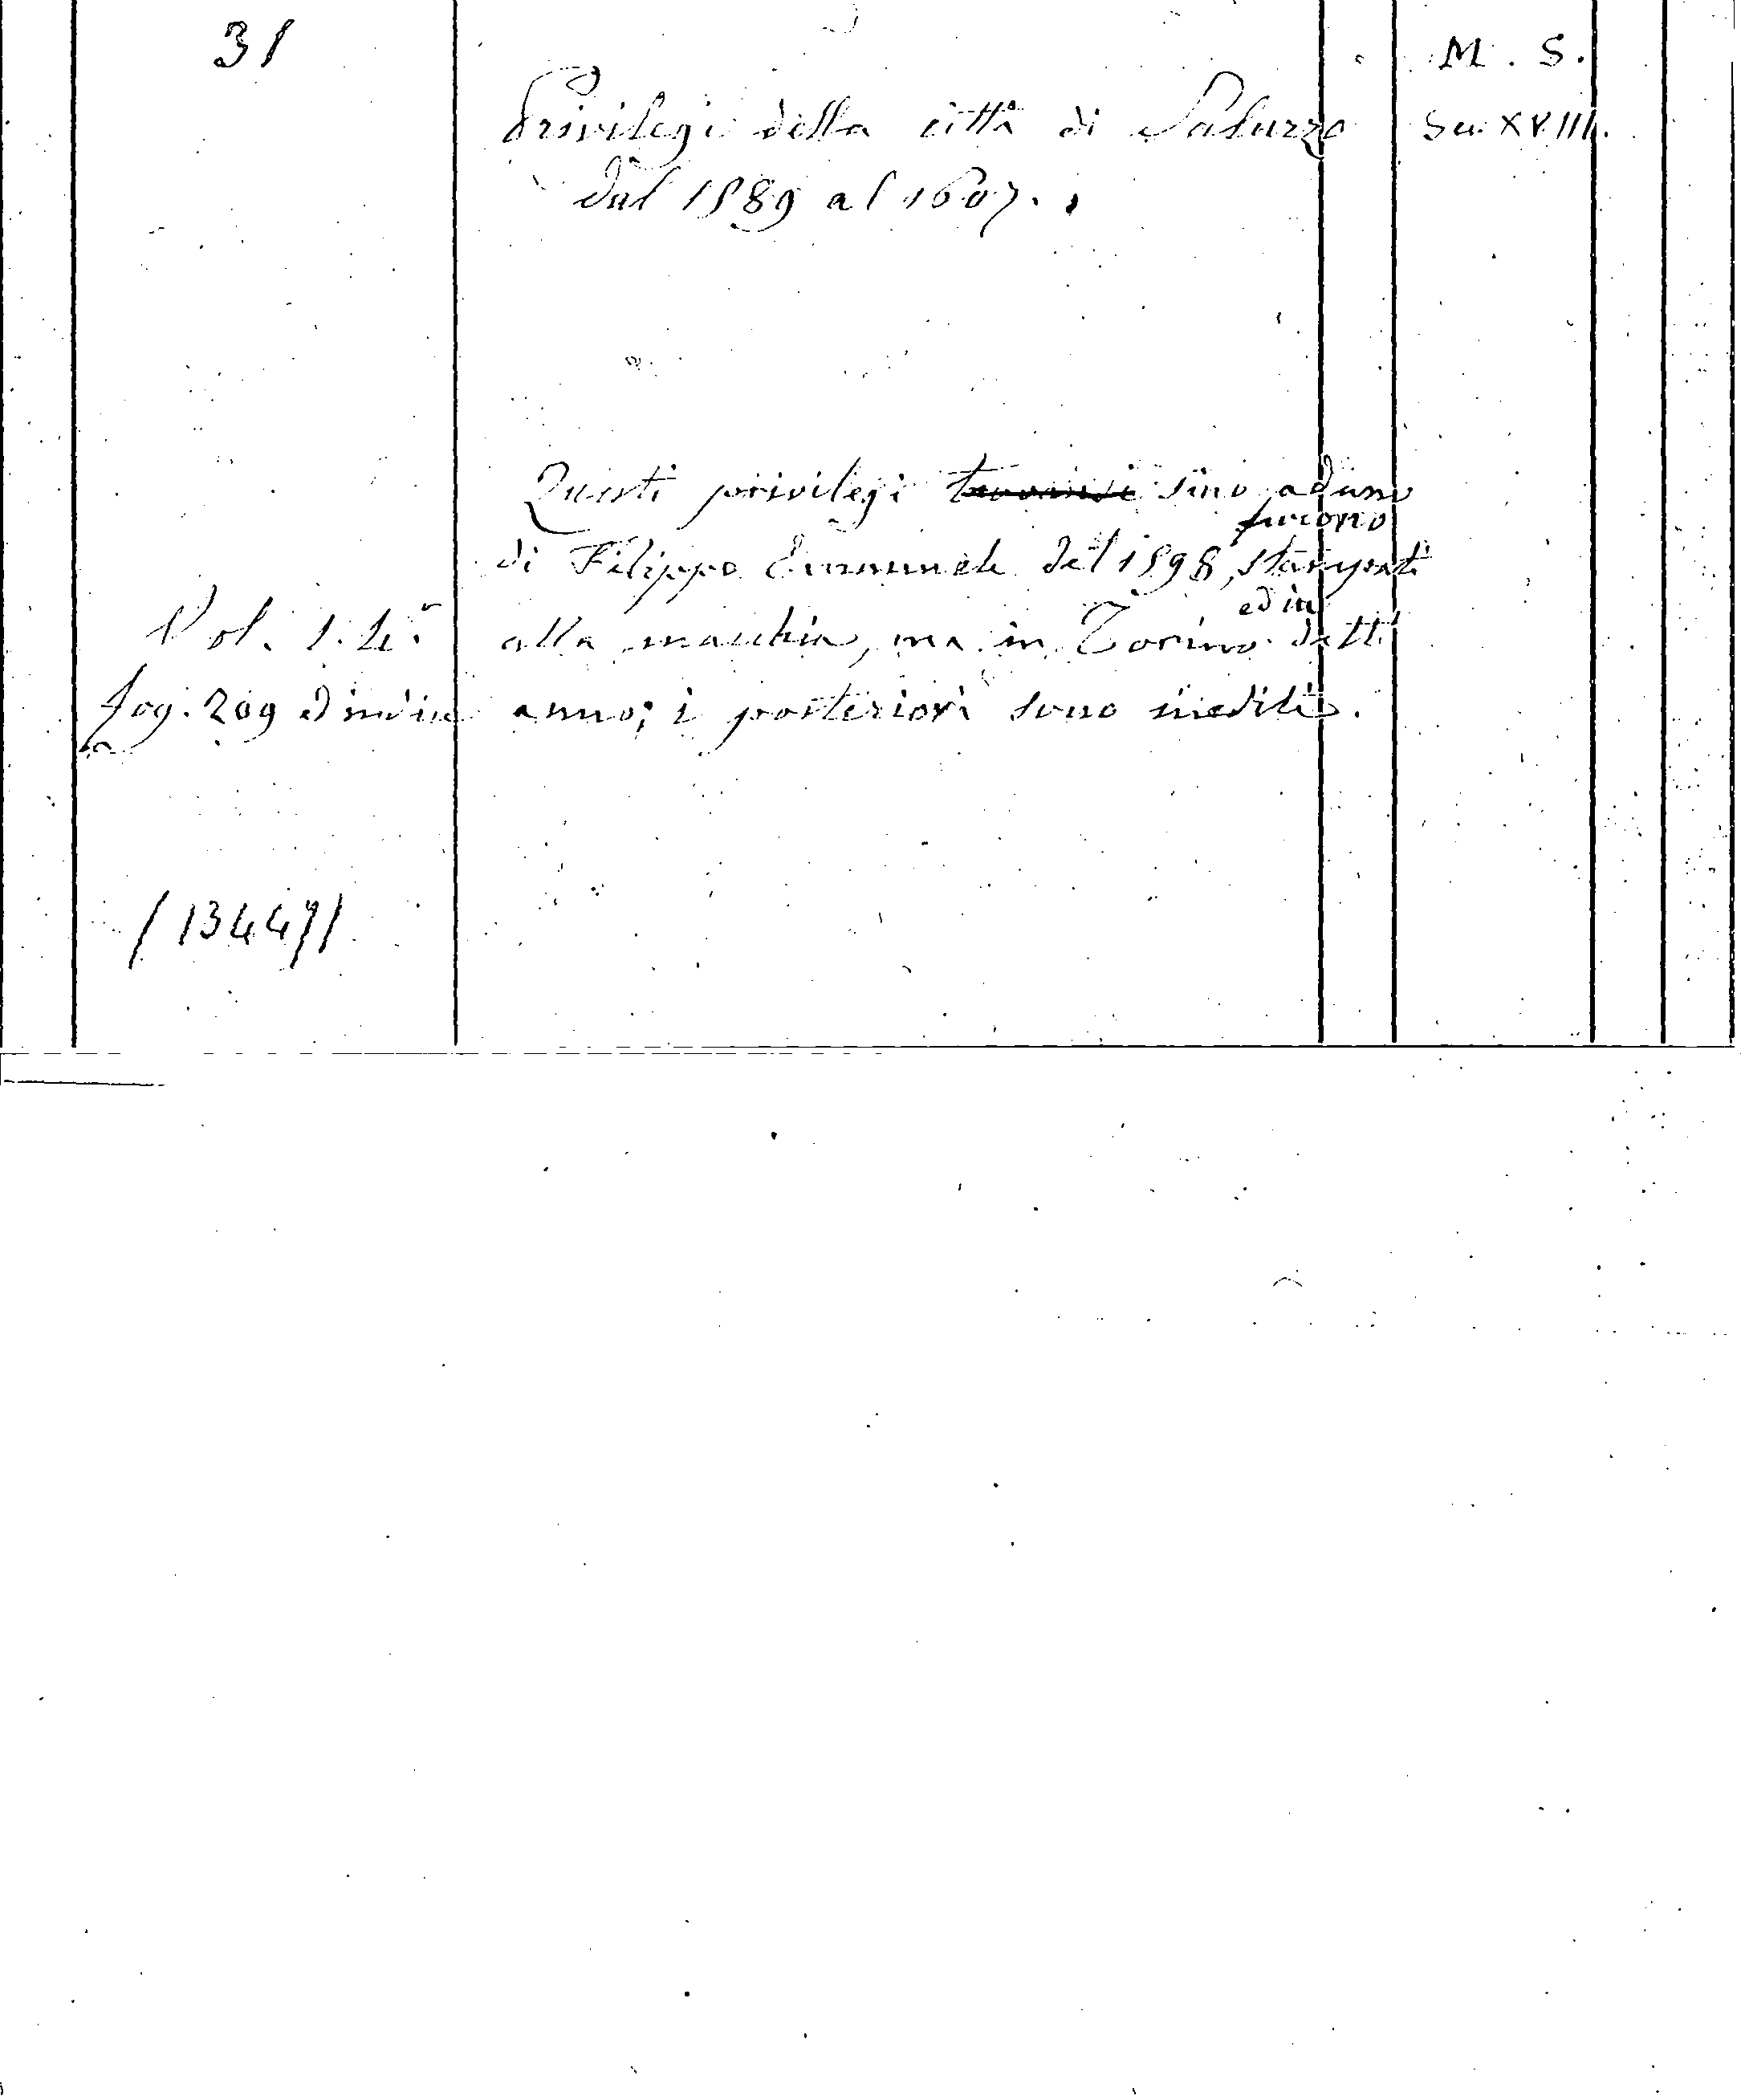 31
M. S.
Privilegi della città di Saluzzo
Sec. XVIII.
dal 1589 al 1607.
Questi privilegi trovansi sino ad uno
furono
di Filippo Emanuele del 1598, stampati
ed in
Vol. 1. 4.°
alla macchia, ma in Torino detto
fog. 209 ed indice
anno; i posteriori sono inediti.
/13447/